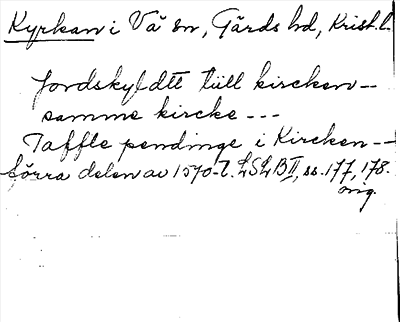 Kyrkan i Vä sn, Gärds hd, Krist.l.
Jordskyldtt tiill kircken --
samme kircke ---
Taffle pendinge i Kircken --
förra delen av 1570-t. LSLB II, ss. 177, 178.
orig.